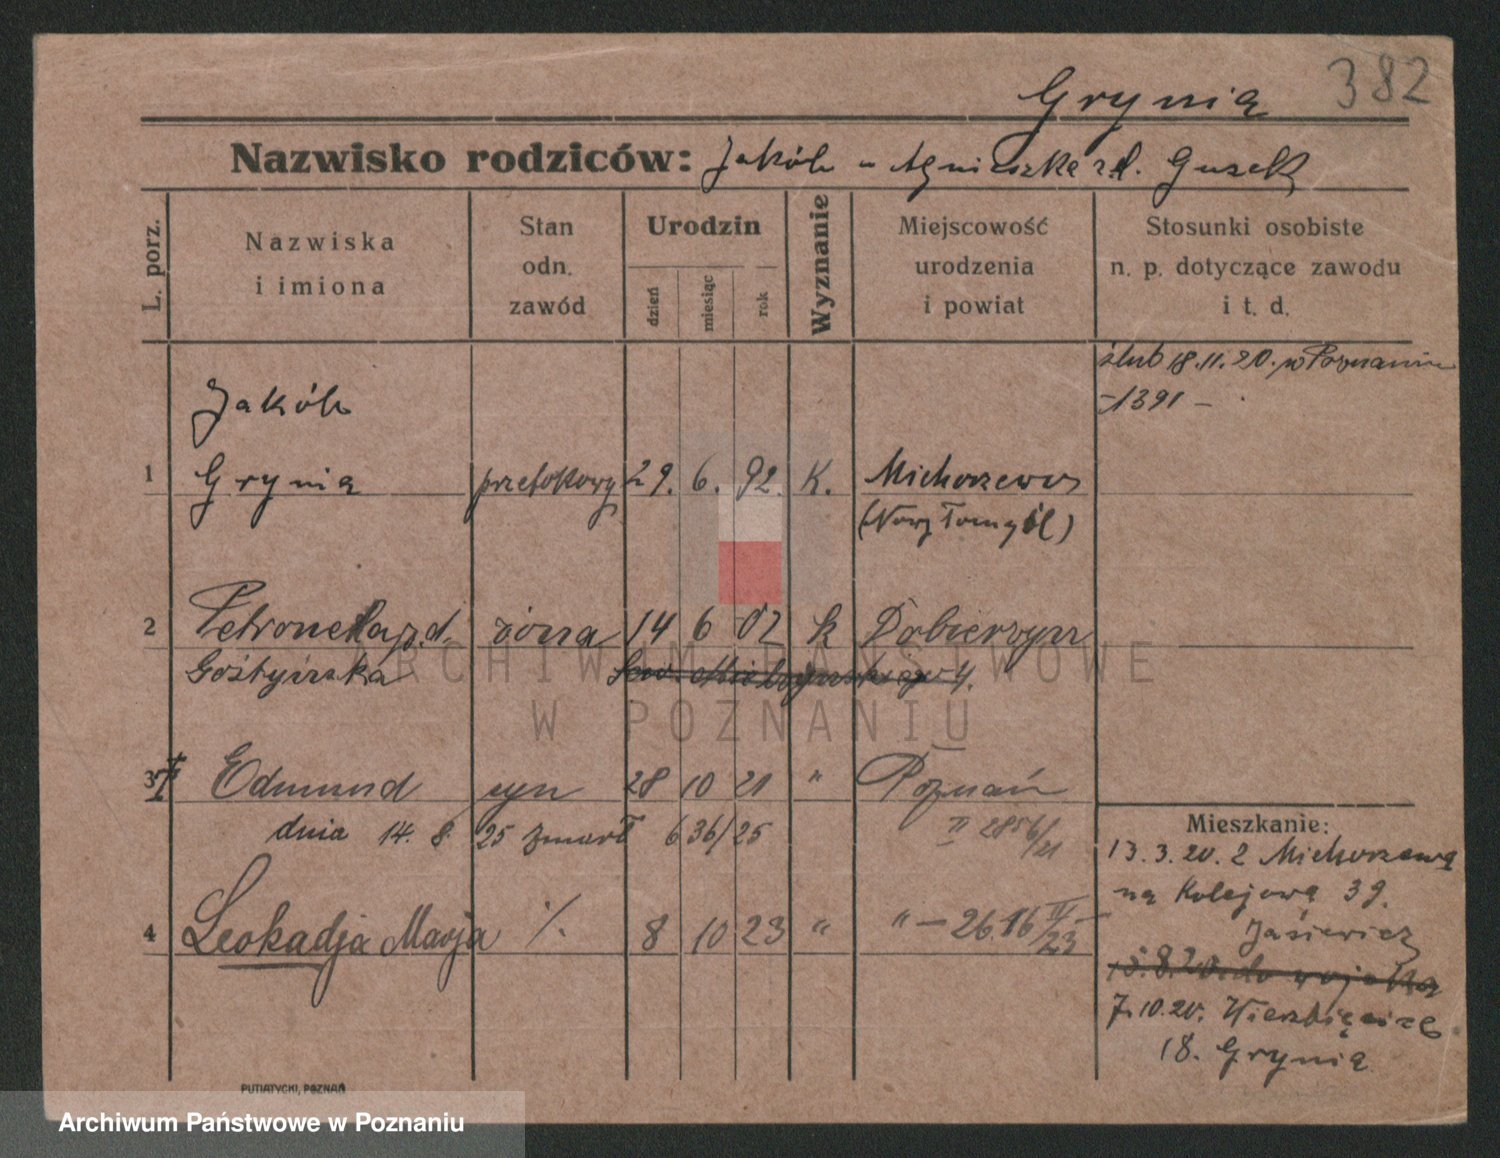 Grynia 382
Nazwisko rodziców: Jakób – Agnieszka z d. Guzek
L. porz.
Nazwiska
i imiona
Stan
odn.
zawód
Urodzin
dzień
miesiąc
rok
Wyznanie
Miejscowość
urodzenia
i powiat
Stosunki osobiste
n. p. dotyczące zawodu
i t. d.
ślub 18.11.20. w Poznaniu
–1391–
Jakób
1 Grynia przetokowy 29. 6. 92. K. Michorzewo
(Nowy Tomyśl)
2 Petronella z d. żona 14 6 02 k Dobieszyn
Goźtyńska
3 Edmund syn 28 10 21 " Poznań
dnia 14. 8. 25 zmarł 636/25 II 2856/21
4 Leokadja Marja ·/. 8 10 23 " " – 2616 II/23
Mieszkanie:
13.3.20. z Michorzewa
na Kolejowa 39.
Jaśiewicz
7.10.20. Wierzbięcice
18. Grynia
PUTIATYCKI, POZNAŃ
ARCHIWUM PAŃSTWOWE
W POZNANIU
Archiwum Państwowe w Poznaniu